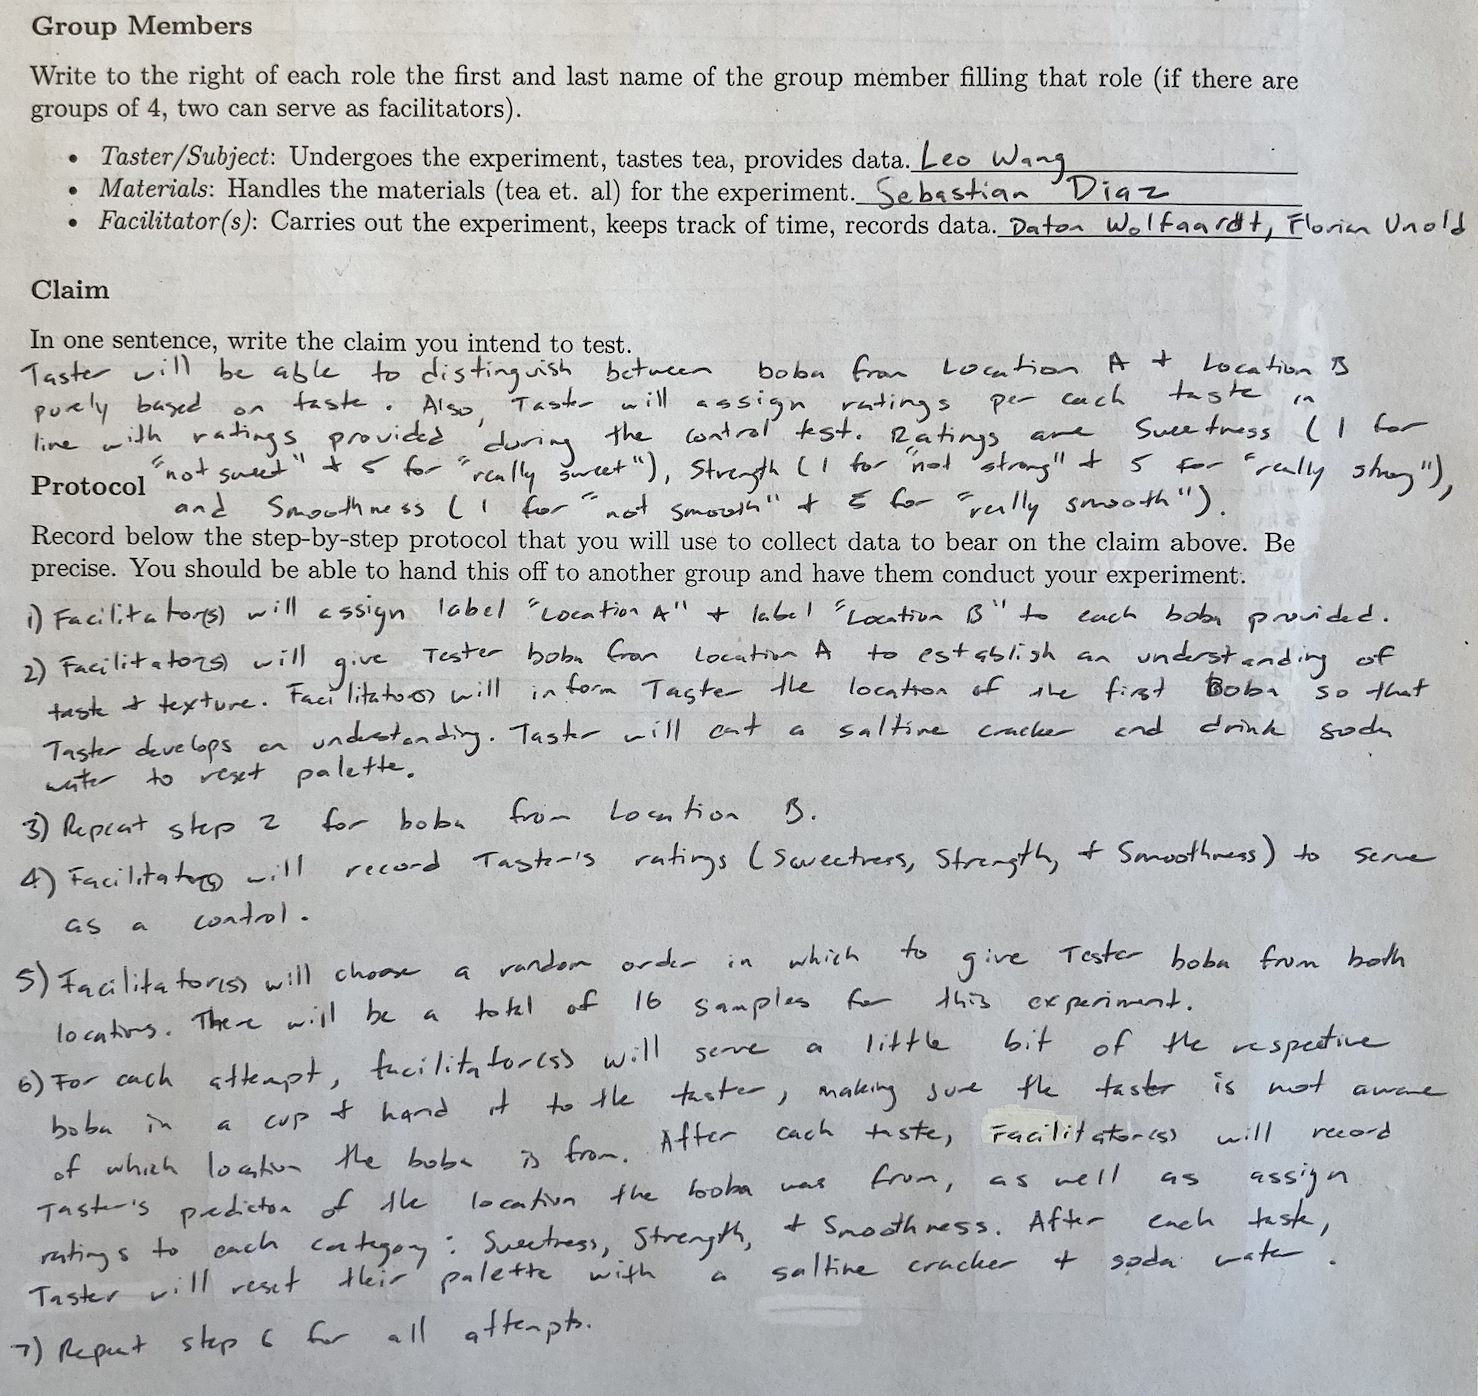 Group Members
Write to the right of each role the first and last name of the group member filling that role (if there are
groups of 4, two can serve as facilitators).
• Taster/Subject: Undergoes the experiment, tastes tea, provides data. Leo Wang
• Materials: Handles the materials (tea et. al) for the experiment. Sebastian Diaz
• Facilitator(s): Carries out the experiment, keeps track of time, records data. Daton Wolfaardt, Florian Unold
Claim
In one sentence, write the claim you intend to test.
Taster will be able to distinguish between boba from Location A + Location B
purely based on taste. Also, Taster will assign ratings per each taste in
line with ratings provided during the control test. Ratings are Sweetness (1 for
"not sweet" + 5 for "really sweet"), Strength (1 for "not strong" + 5 for "really strong"),
Protocol
and Smoothness (1 for "not smooth" + 5 for "really smooth").
Record below the step-by-step protocol that you will use to collect data to bear on the claim above. Be
precise. You should be able to hand this off to another group and have them conduct your experiment.
1) Facilitator(s) will assign label "Location A" + label "Location B" to each boba provided.
2) Facilitator(s) will give Tester boba from Location A to establish an understanding of
taste + texture. Facilitator(s) will inform Taster the location of the first Boba so that
Taster develops an understanding. Taster will eat a saltine cracker and drink soda
water to reset palette.
3) Repeat step 2 for boba from Location B.
4) Facilitator(s) will record Taster's ratings (Sweetness, Strength, + Smoothness) to serve
as a control.
5) Facilitator(s) will choose a random order in which to give Tester boba from both
locations. There will be a total of 16 samples for this experiment.
6) For each attempt, facilitator(s) will serve a little bit of the respective
boba in a cup + hand it to the taster, making sure the taster is not aware
of which location the boba is from. After each taste, Facilitator(s) will record
Taster's prediction of the location the boba was from, as well as assign
ratings to each category: Sweetness, Strength, + Smoothness. After each taste,
Taster will reset their palette with a saltine cracker + soda water.
7) Repeat step 6 for all attempts.